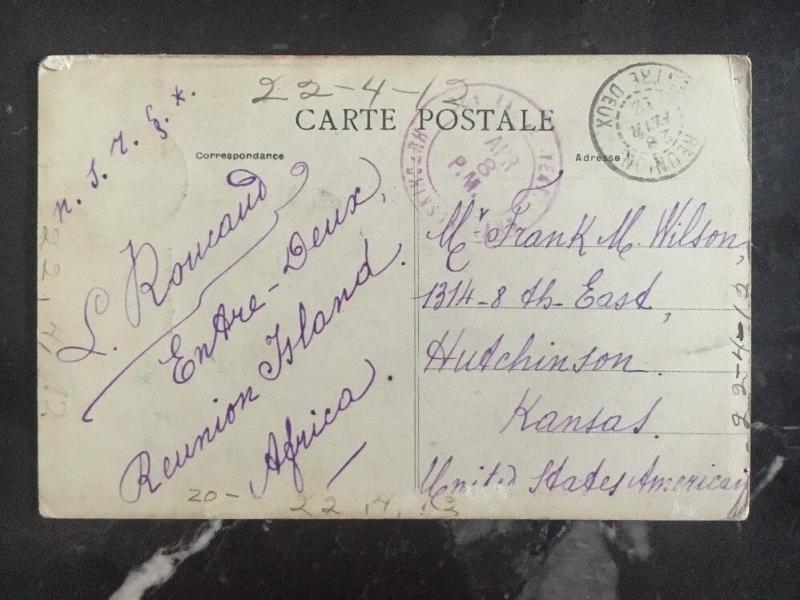 22-4-12
CARTE POSTALE
Correspondance
Adresse
ENTRE DEUX
REUNION
8
FEVR
12
APR
8
P.M.
HUTCHINSON
L. Roucaud
Entre-Deux,
Reunion Island.
Africa.
Mr Frank M. Wilson,
1314-8 th East,
Hutchinson.
Kansas.
United States American
22.4.12
22-4-12
20-
22.4.12